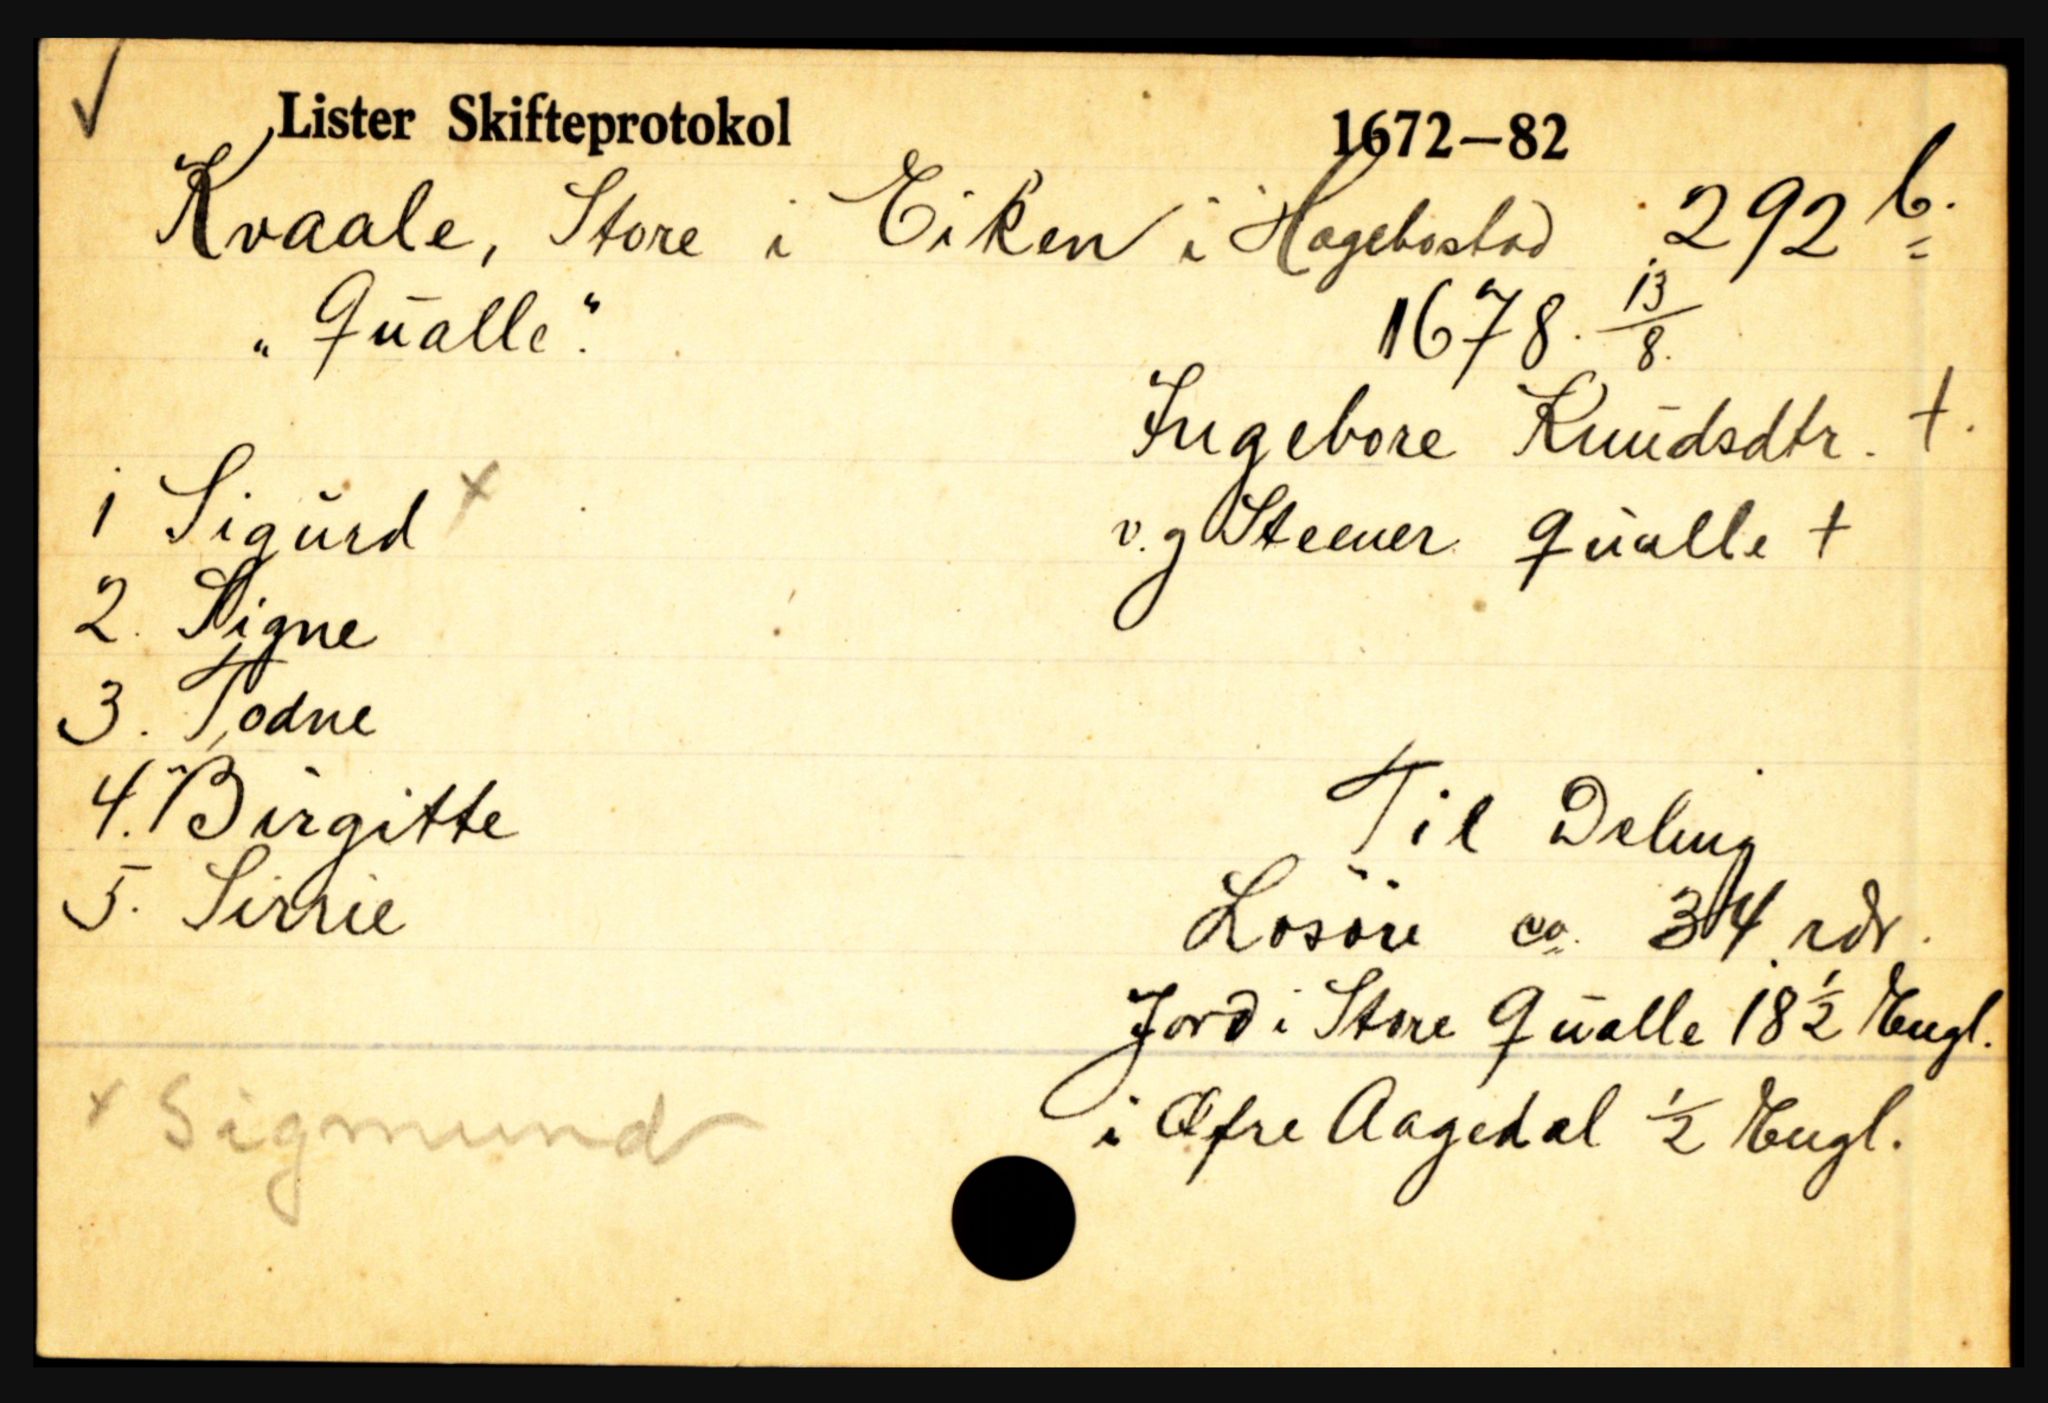 Lister Skifteprotokol 1672—82
Kvaale, Store i Eiken i Hægebostad 292 b.
„Qualle". 1678. 13/8.
Ingebore Knudsdtr. +.
1 Sigurd x v.g Steener Qualle +
2. Signe
3. Todne
4. Birgitte Til Deling
5. Sirrie Losöre ca. 34 rdr.
Jord i Store Qualle 18 1/2 Engl.
x Sigmund i Øfre Aagedal 1/2 Engl.